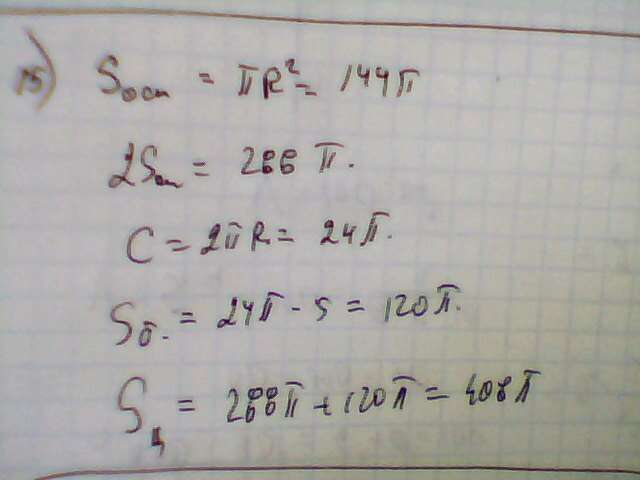 15) Sосн = πR² = 144π
2Sосн = 288π.
C = 2πR = 24π.
Sб. = 24π - 5 = 120π.
Sц = 288π + 120π = 408π